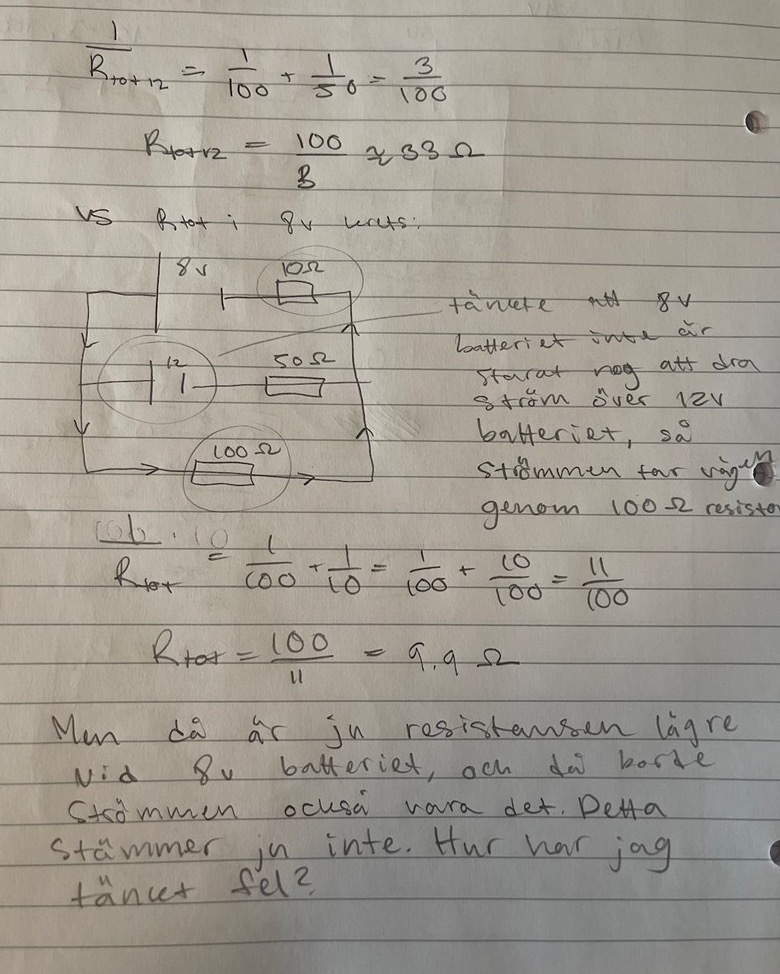 1/R_tot 12 = 1/100 + 1/50 = 3/100
R_tot 12 = 100/3 ≈ 33 Ω
VS R_tot i 8v krets:
8v 10Ω
12 50Ω
100Ω
tänkte att 8v
batteriet inte är
starat nog att dra
ström över 12V
batteriet, så
strömmen tar vägen
genom 100Ω resisto
1/R_tot = 1/100 + 1/10 = 1/100 + 10/100 = 11/100
R_tot = 100/11 = 9,9 Ω
Men då är ju resistansen lägre
vid 8v batteriet, och då borde
strömmen också vara det. Detta
stämmer ju inte. Hur har jag
tänket fel?